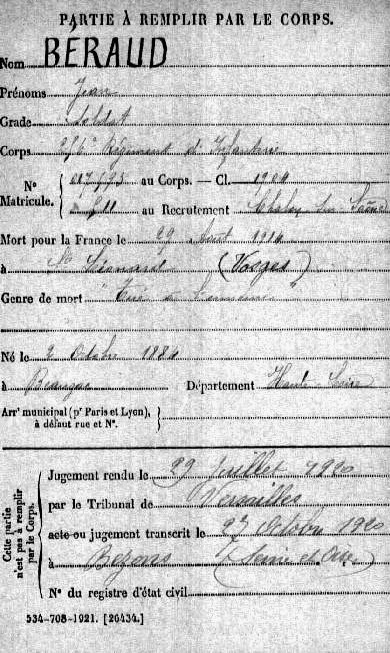 PARTIE À REMPLIR PAR LE CORPS.
Nom BÉRAUD
Prénoms Jean
Grade Soldat
Corps Régiment d'Infanterie
N° Matricule. { au Corps. — Cl. 1904
au Recrutement Chalon sur Saône
Mort pour la France le 29 Août 1914
à St Léonard (Vosges)
Genre de mort Tué à l'ennemi
Né le 2 Octobre 1884
à Beauzac Département Haute-Loire
Arr' municipal (p' Paris et Lyon),
à défaut rue et N°.
Cette partie n'est pas à remplir par le Corps.
Jugement rendu le 29 Juillet 1920
par le Tribunal de Versailles
acte ou jugement transcrit le Octobre 1920
à Bezons (Seine et Oise)
N° du registre d'état civil
534-708-1921. [26434.]